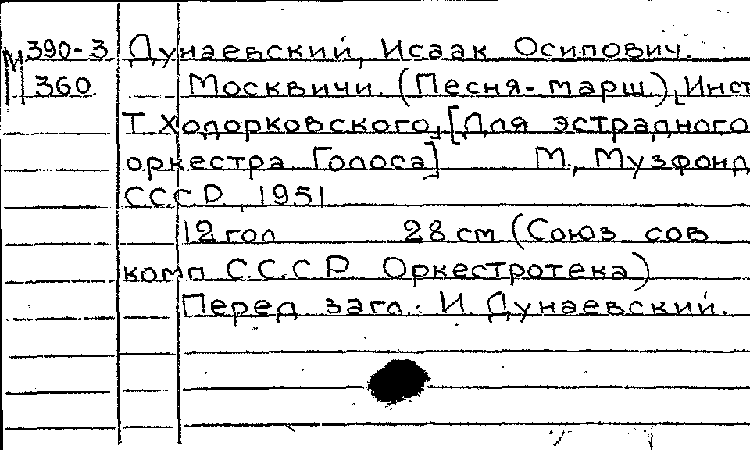 М 390-3 Дунаевский, Исаак Осипович.
360 Москвичи. (Песня-марш.), [Инст
Т. Ходорковского, [Для эстрадного
оркестра. Голоса] М., Музфонд
СССР, 1951
12 гол 28 см (Союз сов
комп СССР. Оркестротека)
Перед загл.: И. Дунаевский.